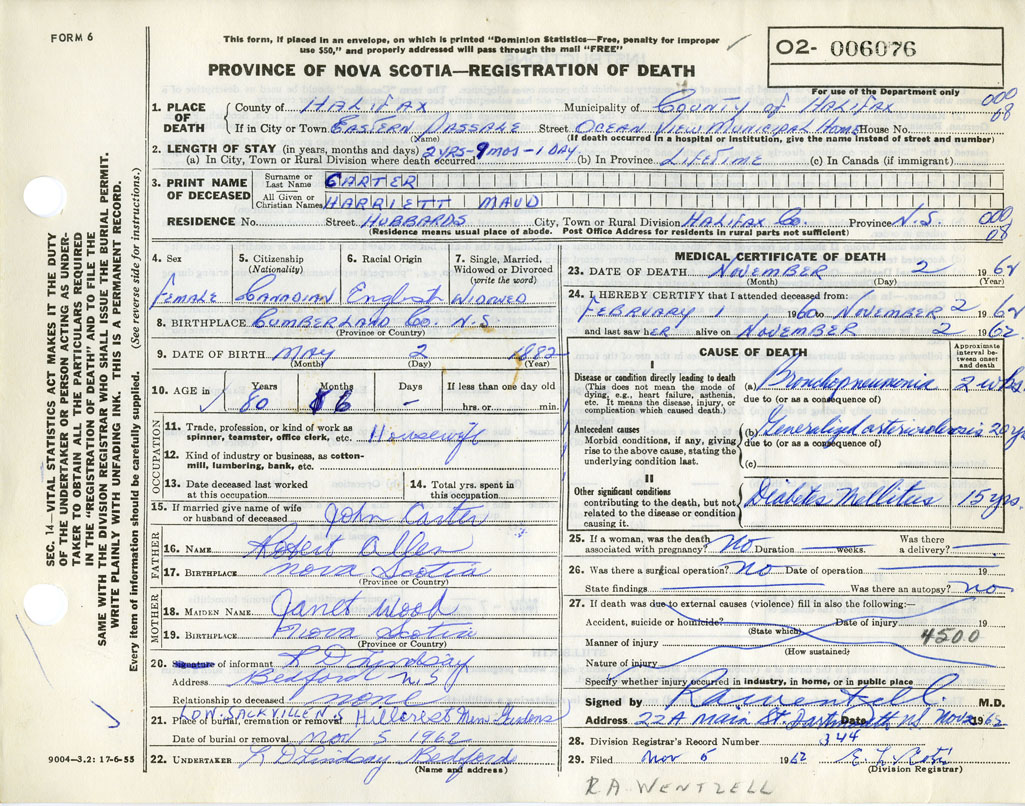 FORM 6
This form, if placed in an envelope, on which is printed "Dominion Statistics—Free, penalty for improper
use $50," and properly addressed will pass through the mail "FREE"
O2- 006076
PROVINCE OF NOVA SCOTIA—REGISTRATION OF DEATH
For use of the Department only
000
08
1. PLACE OF DEATH
County of HALIFAX Municipality of COUNTY OF HALIFAX
If in City or Town EASTERN PASSAGE Street OCEAN VIEW MUNICIPAL HOME House No.
(Name) (If death occurred in a hospital or institution, give the name instead of street and number)
2. LENGTH OF STAY (in years, months and days) 2 YRS - 9 MOS - 1 DAY
(a) In City, Town or Rural Division where death occurred (b) In Province LIFETIME (c) In Canada (if immigrant)
3. PRINT NAME OF DECEASED
Surname or Last Name CARTER
All Given or Christian Names HARRIETT MAUD
RESIDENCE No. Street HUBBARDS City, Town or Rural Division HALIFAX Co. Province N.S. 000
08
(Residence means usual place of abode. Post Office Address for residents in rural parts not sufficient)
SEC. 14—VITAL STATISTICS ACT MAKES IT THE DUTY
OF THE UNDERTAKER OR PERSON ACTING AS UNDER-
TAKER TO OBTAIN ALL THE PARTICULARS REQUIRED
IN THE "REGISTRATION OF DEATH" AND TO FILE THE
SAME WITH THE DIVISION REGISTRAR WHO SHALL ISSUE THE BURIAL PERMIT.
WRITE PLAINLY WITH UNFADING INK. THIS IS A PERMANENT RECORD.
Every item of information should be carefully supplied. (See reverse side for instructions.)
4. Sex
5. Citizenship
(Nationality)
6. Racial Origin
7. Single, Married,
Widowed or Divorced
(write the word)
FEMALE CANADIAN English WIDOWED
8. BIRTHPLACE CUMBERLAND Co. N.S
(Province or Country)
9. DATE OF BIRTH MAY 2 1882
(Month) (Day) (Year)
10. AGE in Years Months Days If less than one day old
80 6 - hrs. or min.
OCCUPATION
11. Trade, profession, or kind of work as
spinner, teamster, office clerk, etc. Housewife
12. Kind of industry or business, as cotton-
mill, lumbering, bank, etc.
13. Date deceased last worked
at this occupation
14. Total yrs. spent in
this occupation
15. If married give name of wife
or husband of deceased John Carter
FATHER
16. NAME Robert Allen
17. BIRTHPLACE Nova Scotia
(Province or Country)
MOTHER
18. MAIDEN NAME Janet Wood
19. BIRTHPLACE Nova Scotia
(Province or Country)
20. Signature of informant L D Lindsay
Address Bedford N.S
Relationship to deceased none
LOW. SACKVILLE
21. Place of burial, cremation or removal Hillcrest Mem Gardens
Date of burial or removal Nov 5 1962
22. UNDERTAKER L D Lindsay Bedford
(Name and address)
9004—3.2: 17-6-55
MEDICAL CERTIFICATE OF DEATH
23. DATE OF DEATH NOVEMBER 2 1962
(Month) (Day) (Year)
24. I HEREBY CERTIFY that I attended deceased from:
FEBRUARY 1 1960 to NOVEMBER 2 1962
and last saw hER alive on NOVEMBER 2 1962
CAUSE OF DEATH
Approximate
interval be-
tween onset
and death
I
Disease or condition directly leading to death
(This does not mean the mode of
dying, e.g., heart failure, asthenia,
etc. It means the disease, injury, or
complication which caused death.)
(a) Bronchopneumonia 2 wks.
due to (or as a consequence of)
Antecedent causes
Morbid conditions, if any, giving
rise to the above cause, stating the
underlying condition last.
(b) Generalized arteriosclerosis 20 yrs
due to (or as a consequence of)
(c)
II
Other significant conditions
contributing to the death, but not
related to the disease or condition
causing it.
Diabetes Mellitus 15 yrs.
25. If a woman, was the death
associated with pregnancy? No Duration weeks. Was there
a delivery?
26. Was there a surgical operation? No Date of operation 19
State findings Was there an autopsy? no
27. If death was due to external causes (violence) fill in also the following:—
Accident, suicide or homicide? Date of injury 19
(State which)
4500
Manner of injury
(How sustained)
Nature of injury
Specify whether injury occurred in industry, in home, or in public place
Signed by RAWentzell M.D.
Address 22A Main St. Dartmouth NS Date Nov 2 1962
28. Division Registrar's Record Number 344
29. Filed Nov 5 1962
(Division Registrar)
R A WENTZELL